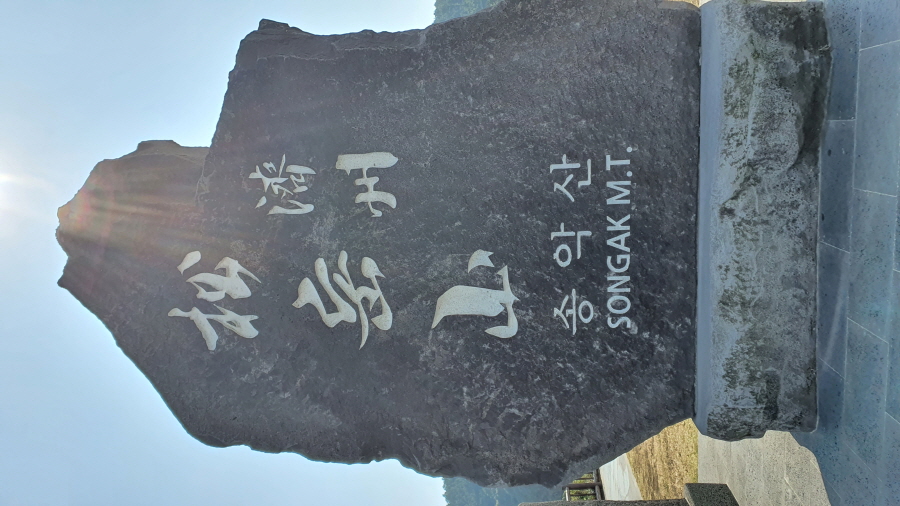 濟州
松岳山
송악산
SONGAK M.T.